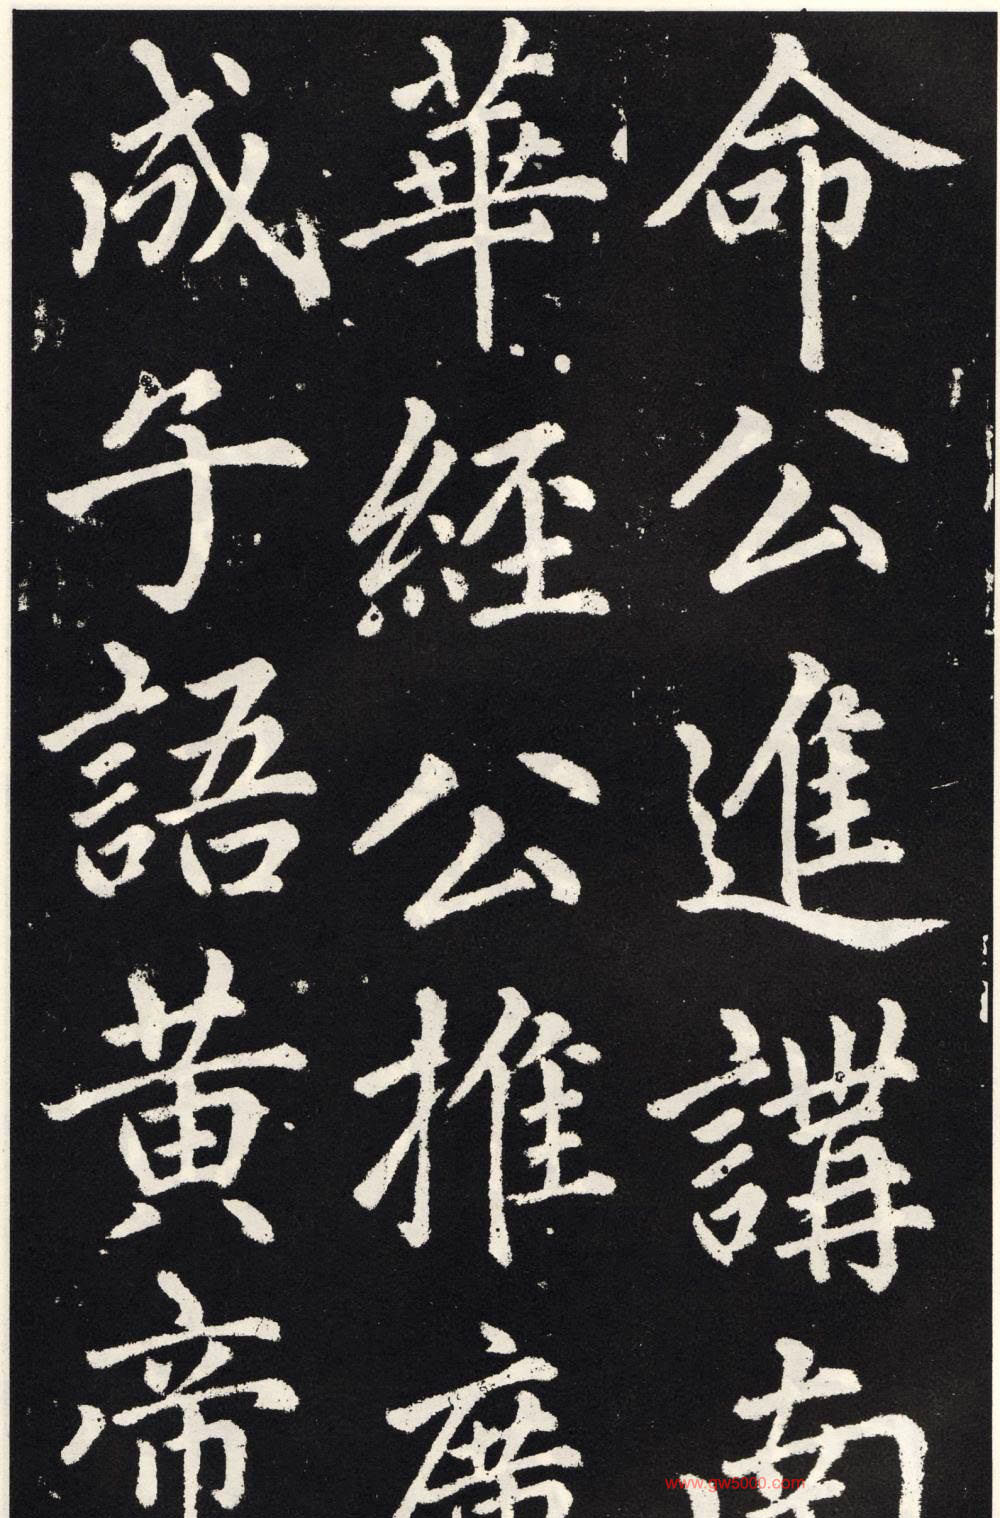 命公進講南
華經公推廣
成子語黃帝
www.gw5000.com